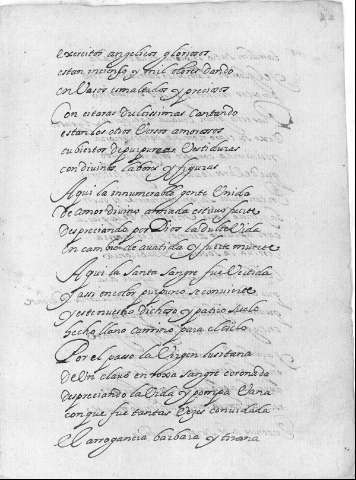 exercitos angelicos gloriosos
estan incienso y mil olores dando
en Vasos esmaltados y preciosos
Con citaras dulcissimas Cantando
estan los otros Versos amorosos
cubiertos de purpureas Vestiduras
con divinas labores y figuras
Aqui la innumerable gente Unida
De amor divino armada estuvo fuerte
Despreciando por Dios la dulce Vida
En cambio de abatida y fuerte muerte
Aqui la Santa Sangre fue Vertida
y assi en color purpureo se convierte
y este nuestro dichoso y patrio suelo
hecho llano camino para el cielo
Por el passo la Virgen lusitana
de Un clavo en roxa sangre coronada
despreciando la Vida y pompa Vana
con que fue tantas Vezes convidada
El arrogancia barbara y tirana